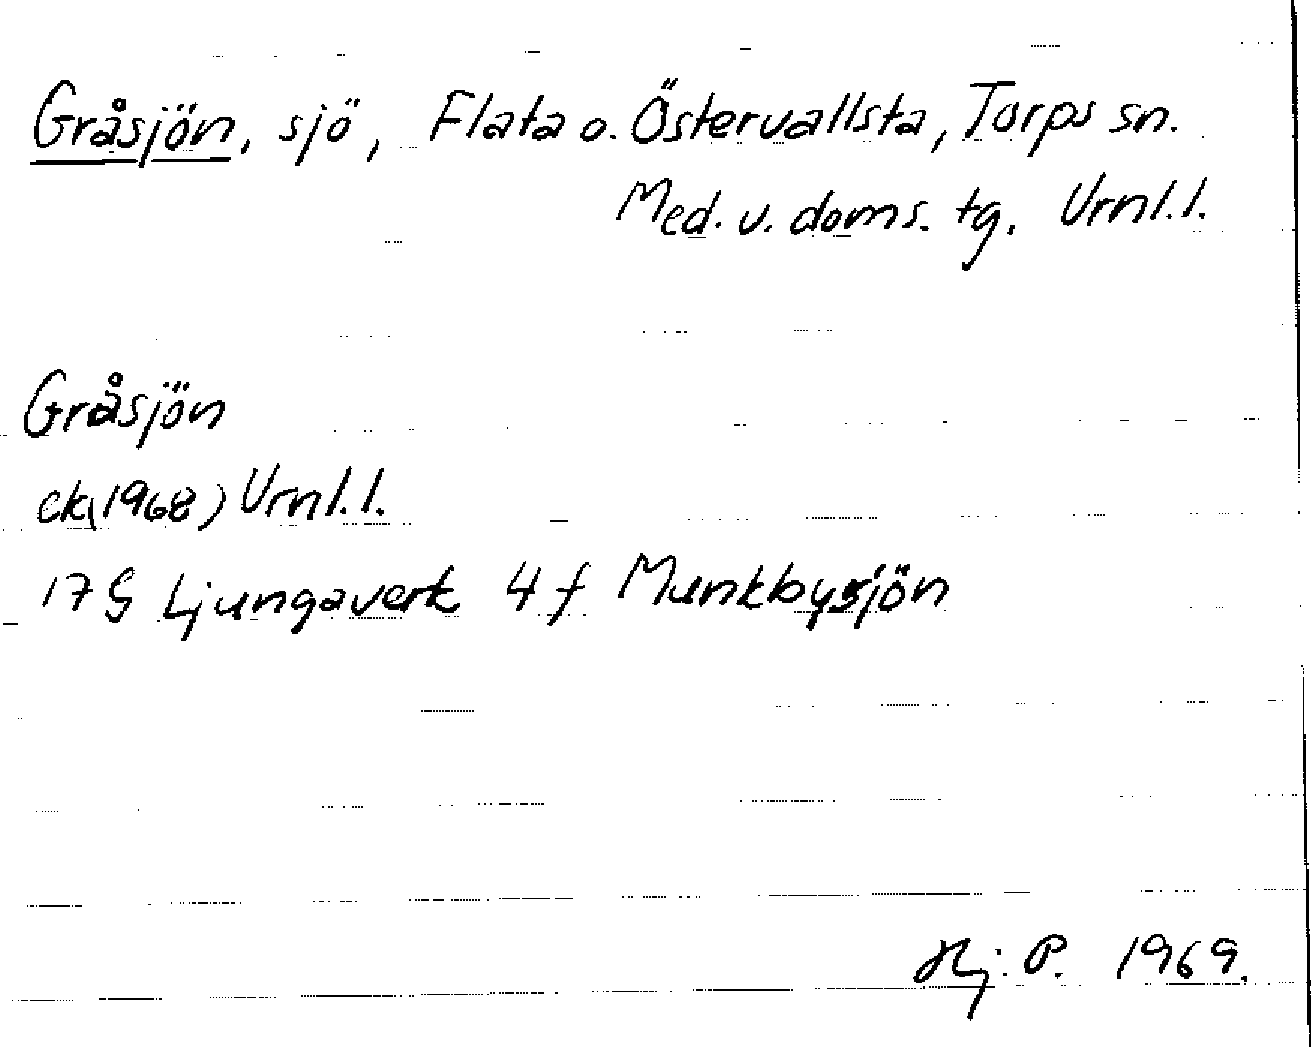 Gråsjön, sjö, Flata o. Östervallsta, Torps sn.
Med. v. doms. tg. Vrnl.l.
Gråsjön
ek(1968) Vrnl.l.
17 G Ljungaverk 4 f Munkbysjön
Hj. P. 1969.